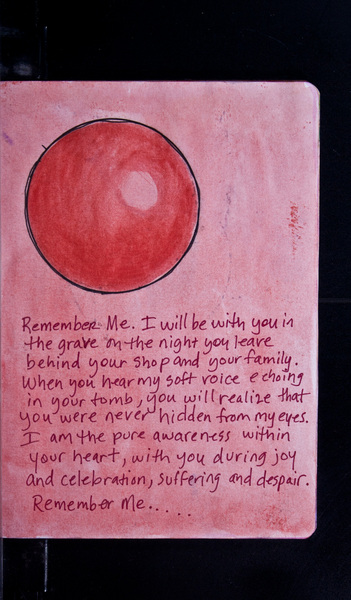 Remember Me. I will be with you in
the grave on the night you leave
behind your shop and your family.
When you hear my soft voice echoing
in your tomb, you will realize that
you were never hidden from my eyes.
I am the pure awareness within
your heart, with you during joy
and celebration, suffering and despair.
Remember Me.....